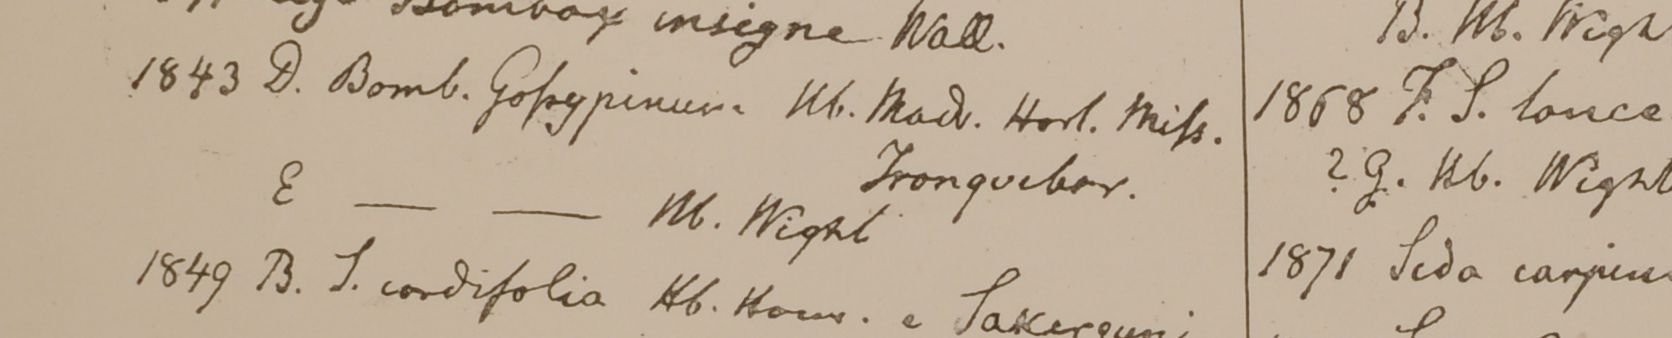 Bombax insigne Wall.
1843 D. Bomb. Gossypinum. Hb. Madr. Horl. Miss.
Tranquebar.
E — — Hb. Wight
1849 B. S. cordifolia Hb. Ham. e
B. Hb. Wigh
1868 F. S. lance
? G. Hb. Wight
1871 Sida carpin